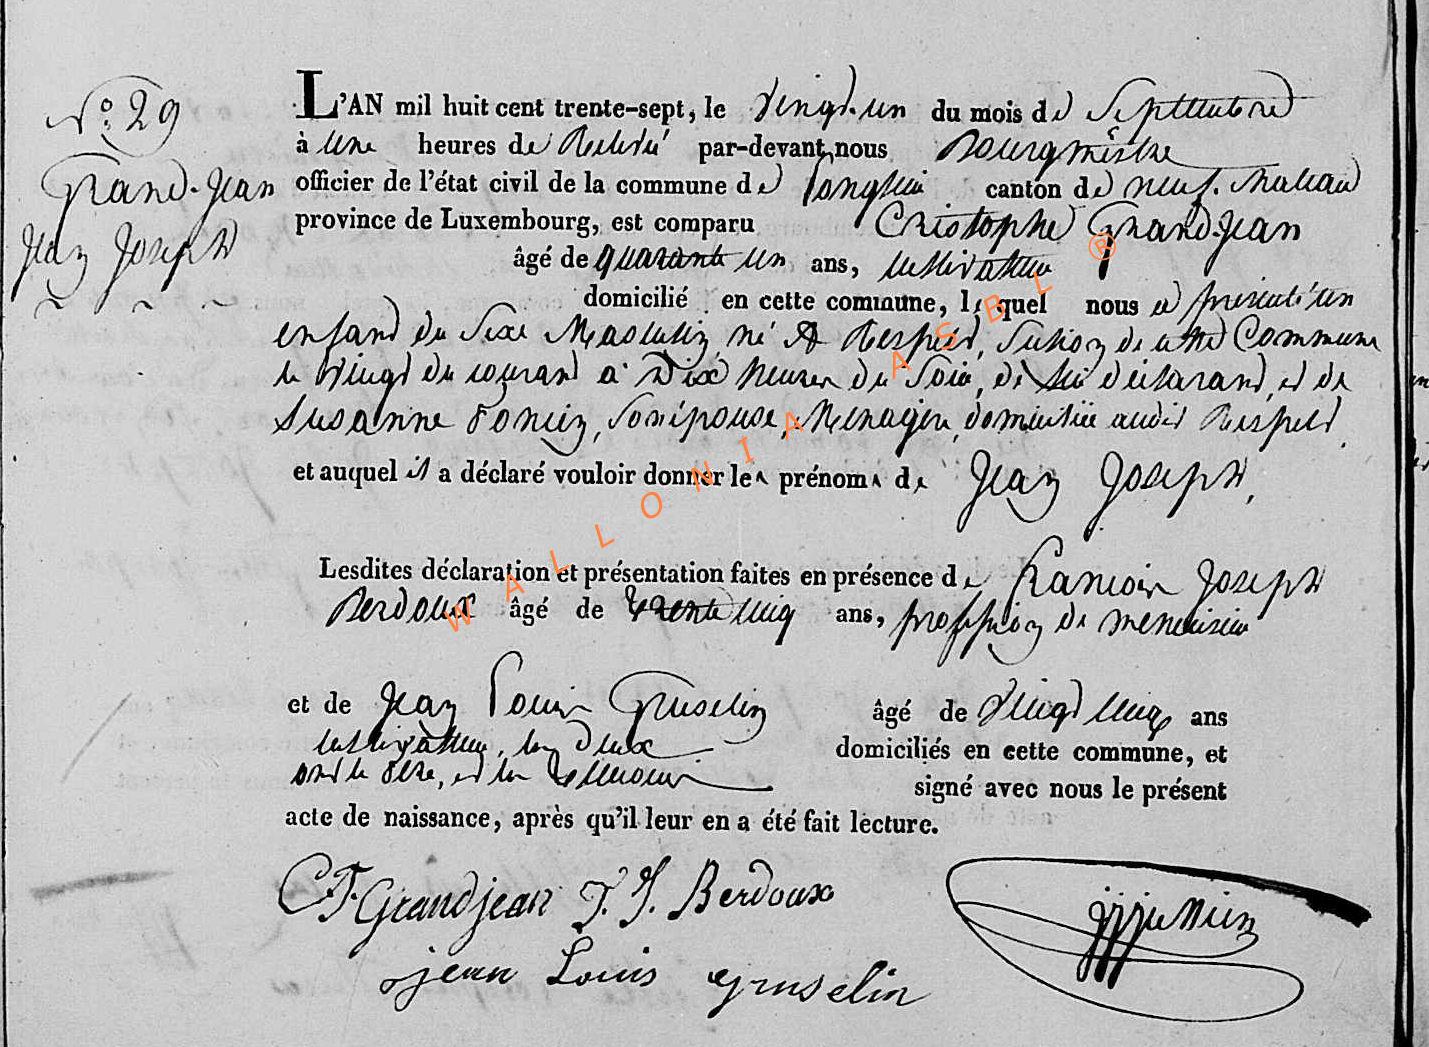 N.o 29
Grand-Jean
Jean Joseph
L'AN mil huit cent trente-sept, le vingt-un du mois de Septembre
à une heures de Relevé par-devant nous Bourgmestre
officier de l'état civil de la commune de Longlier canton de neuf-chateau
province de Luxembourg, est comparu Cristophe Grand-Jean
âgé de quarante un ans, cultivateur
domicilié en cette commune, lequel nous a présenté un
enfant du sexe Masculin né A Respelt, Section de cette Commune
le vingt du courant a Dix heures du soir, de lui déclarant, et de
Susanne Poncin, son épouse, Menagere, domiciliée audit Respelt,
et auquel il a déclaré vouloir donner les prénoms de Jean Joseph,
Lesdites déclaration et présentation faites en présence de Francois Joseph
Berdoux âgé de trente cinq ans, profession de menuisier
et de Jean Louis Gruselin âgé de vingt cinq ans
cultivateur, les deux domiciliés en cette commune, et
ont le Pere, et les temoins signé avec nous le présent
acte de naissance, après qu'il leur en a été fait lecture.
C F Grandjean F. J. Berdoux
jean Louis gruselin
WALLONIA ASBL ®